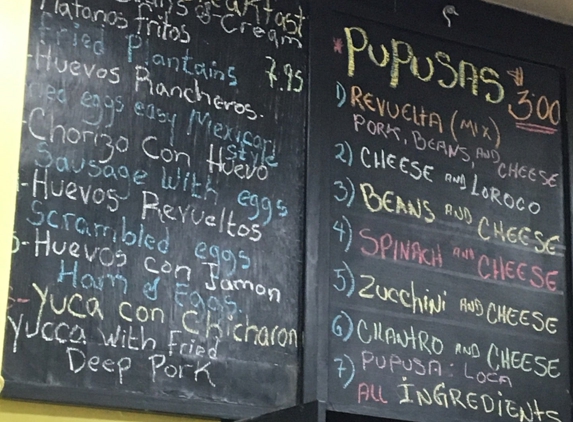 & Cream
Platanos fritos
Fried Plantains 7.95
-Huevos Rancheros.
eggs easy Mexican
style
-Chorizo Con Huevo
Sausage with eggs
-Huevos Revueltos
Scrambled eggs
-Huevos con Jamon
Ham & Eggs.
-Yuca con Chicharon
Yucca with Fried
Deep Pork
*PUPUSAS $3.00
1) REVUELTA (MIX)
PORK, BEANS, AND CHEESE
2) CHEESE AND LOROCO
3) BEANS AND CHEESE
4) SPINACH AND CHEESE
5) Zucchini AND CHEESE
6) CILANTRO AND CHEESE
7) PUPUSA: LOCA
ALL INGREDIENTS